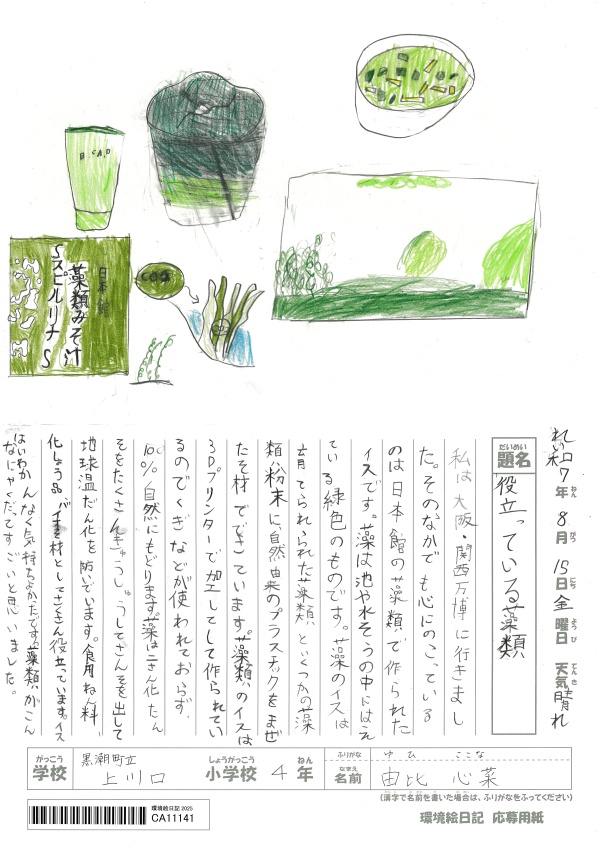 日本館
藻類みそ汁
～スピルリナ～
れい和7年8月15日金曜日 天気晴れ
だいめい
題名
役立っている藻類
私は大阪・関西万博に行きまし
た。そのなかでも心にのこっている
のは日本館の藻類で作られた
イスです。藻は池や水そうの中にはえ
ている緑色のものです。藻のイスは
育てられられた藻類といくつかの藻
類粉末に、自然由来のプラスチックをまぜ
たそ材でできています。藻類のイスは
3Dプリンターで加工してして作られてい
るのでくぎなどが使われておらず、
100%自然にもどります。藻は二さん化たん
そをたくさんきゅうしゅうしてさんそを出して
地球温だん化を防いでいます。食用、ねん料、
化しょう品、バイオ素材としてたくさん役立っています。イス
はいわかんなく気持ちよかったです。藻類がこん
なにやくだってすごいと思いました。
がっこう
学校
黒潮町立
上川口
しょうがっこう
小学校
4
ねん
年
ふりがな
ゆひ ここな
なまえ
名前
由比 心菜
(漢字で名前を書いた場合は、ふりがなをふってください)
環境絵日記 2025
CA11141
環境絵日記 応募用紙